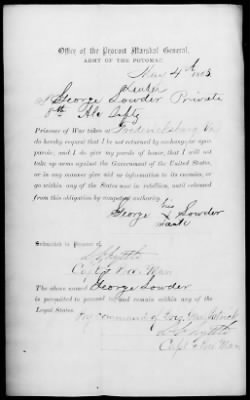 Office of the Provost Marshal General,
ARMY OF THE POTOMAC,
May 4th 1863.
I George Lowder Private
8th Ala Infty
Prisoner of War taken at Fredericksburg Va
do hereby request that I be not returned by exchange, or upon
parole; and I do give my parole of honor, that I will not
take up arms against the Government of the United States,
or in any manner give aid or information to its enemies, or
go within any of the States now in rebellion, until released
from this obligation by competent authority.
his
George X Lowder
mark
Subscribed in Presence of
Capt & Pro. Mar
The above named George Lowder
is permitted to proceed to, and remain within any of the
Loyal States.
By command of Brig. Gen. Patrick
Capt & Pro Mar